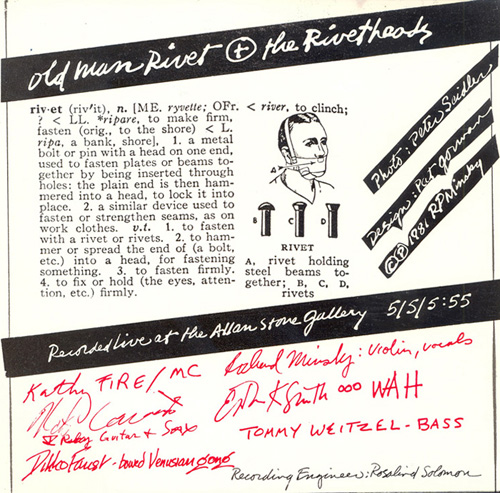 old man Rivet + the Rivetheads
riv·et (riv'it), n. [ME. ryvette; OFr. < river, to clinch;
? < LL. *ripare, to make firm,
fasten (orig., to the shore) < L.
ripa, a bank, shore], 1. a metal
bolt or pin with a head on one end,
used to fasten plates or beams to-
gether by being inserted through
holes: the plain end is then ham-
mered into a head, to lock it into
place. 2. a similar device used to
fasten or strengthen seams, as on
work clothes. v.t. 1. to fasten
with a rivet or rivets. 2. to ham-
mer or spread the end of (a bolt,
etc.) into a head, for fastening
something. 3. to fasten firmly.
4. to fix or hold (the eyes, atten-
tion, etc.) firmly.
A
B C D
RIVET
A, rivet holding
steel beams to-
gether; B, C, D,
rivets
Photo: Peter Seidler
Design: Pat Gorman
© ℗ 1981 RPMinsky
Recorded live at the Allan Stone Gallery 5/5/5:55
Kathy FIRE / MC
Richard Minsky: Violin, vocals
Guitar & Sax
ooo WAH
TOMMY WEITZEL - BASS
Dikko Faust - bowed Venusian gongs
Recording Engineer: Rosalind Solomon